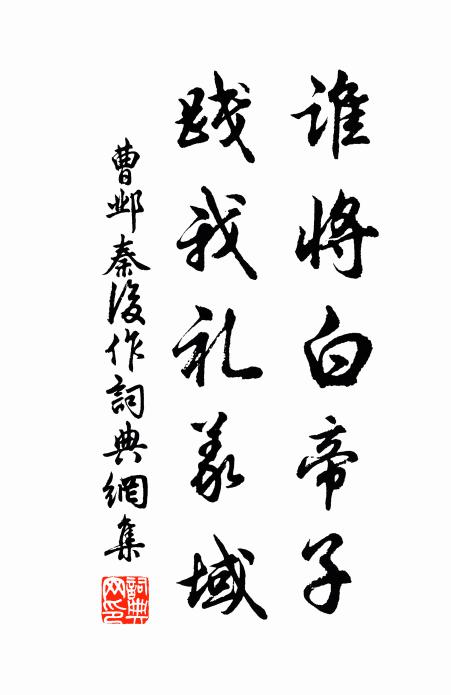 谁将白帝子
践我礼义域
曹邺秦後作词典網集
詞典网印